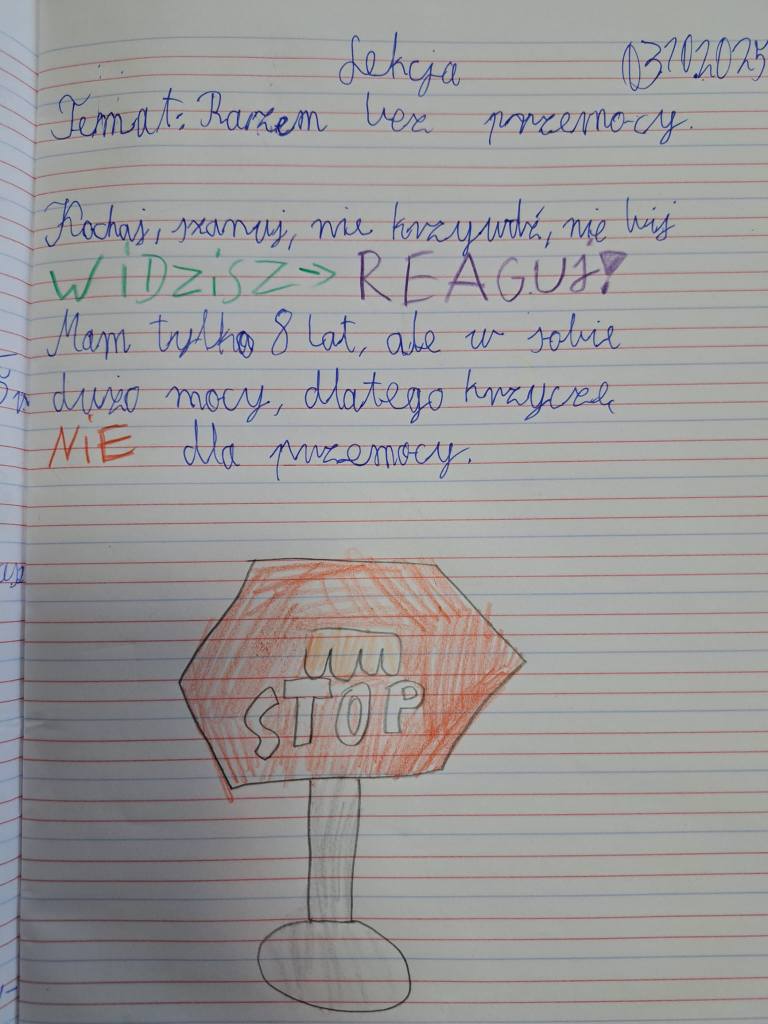 Lekcja 03102025
Temat: Razem bez przemocy.
Kochaj, szanuj, nie krzywdź, nie bij
WIDZISZ → REAGUJ!
Mam tylko 8 lat, ale w sobie
dużo mocy, dlatego krzyczę
NIE dla przemocy.
STOP